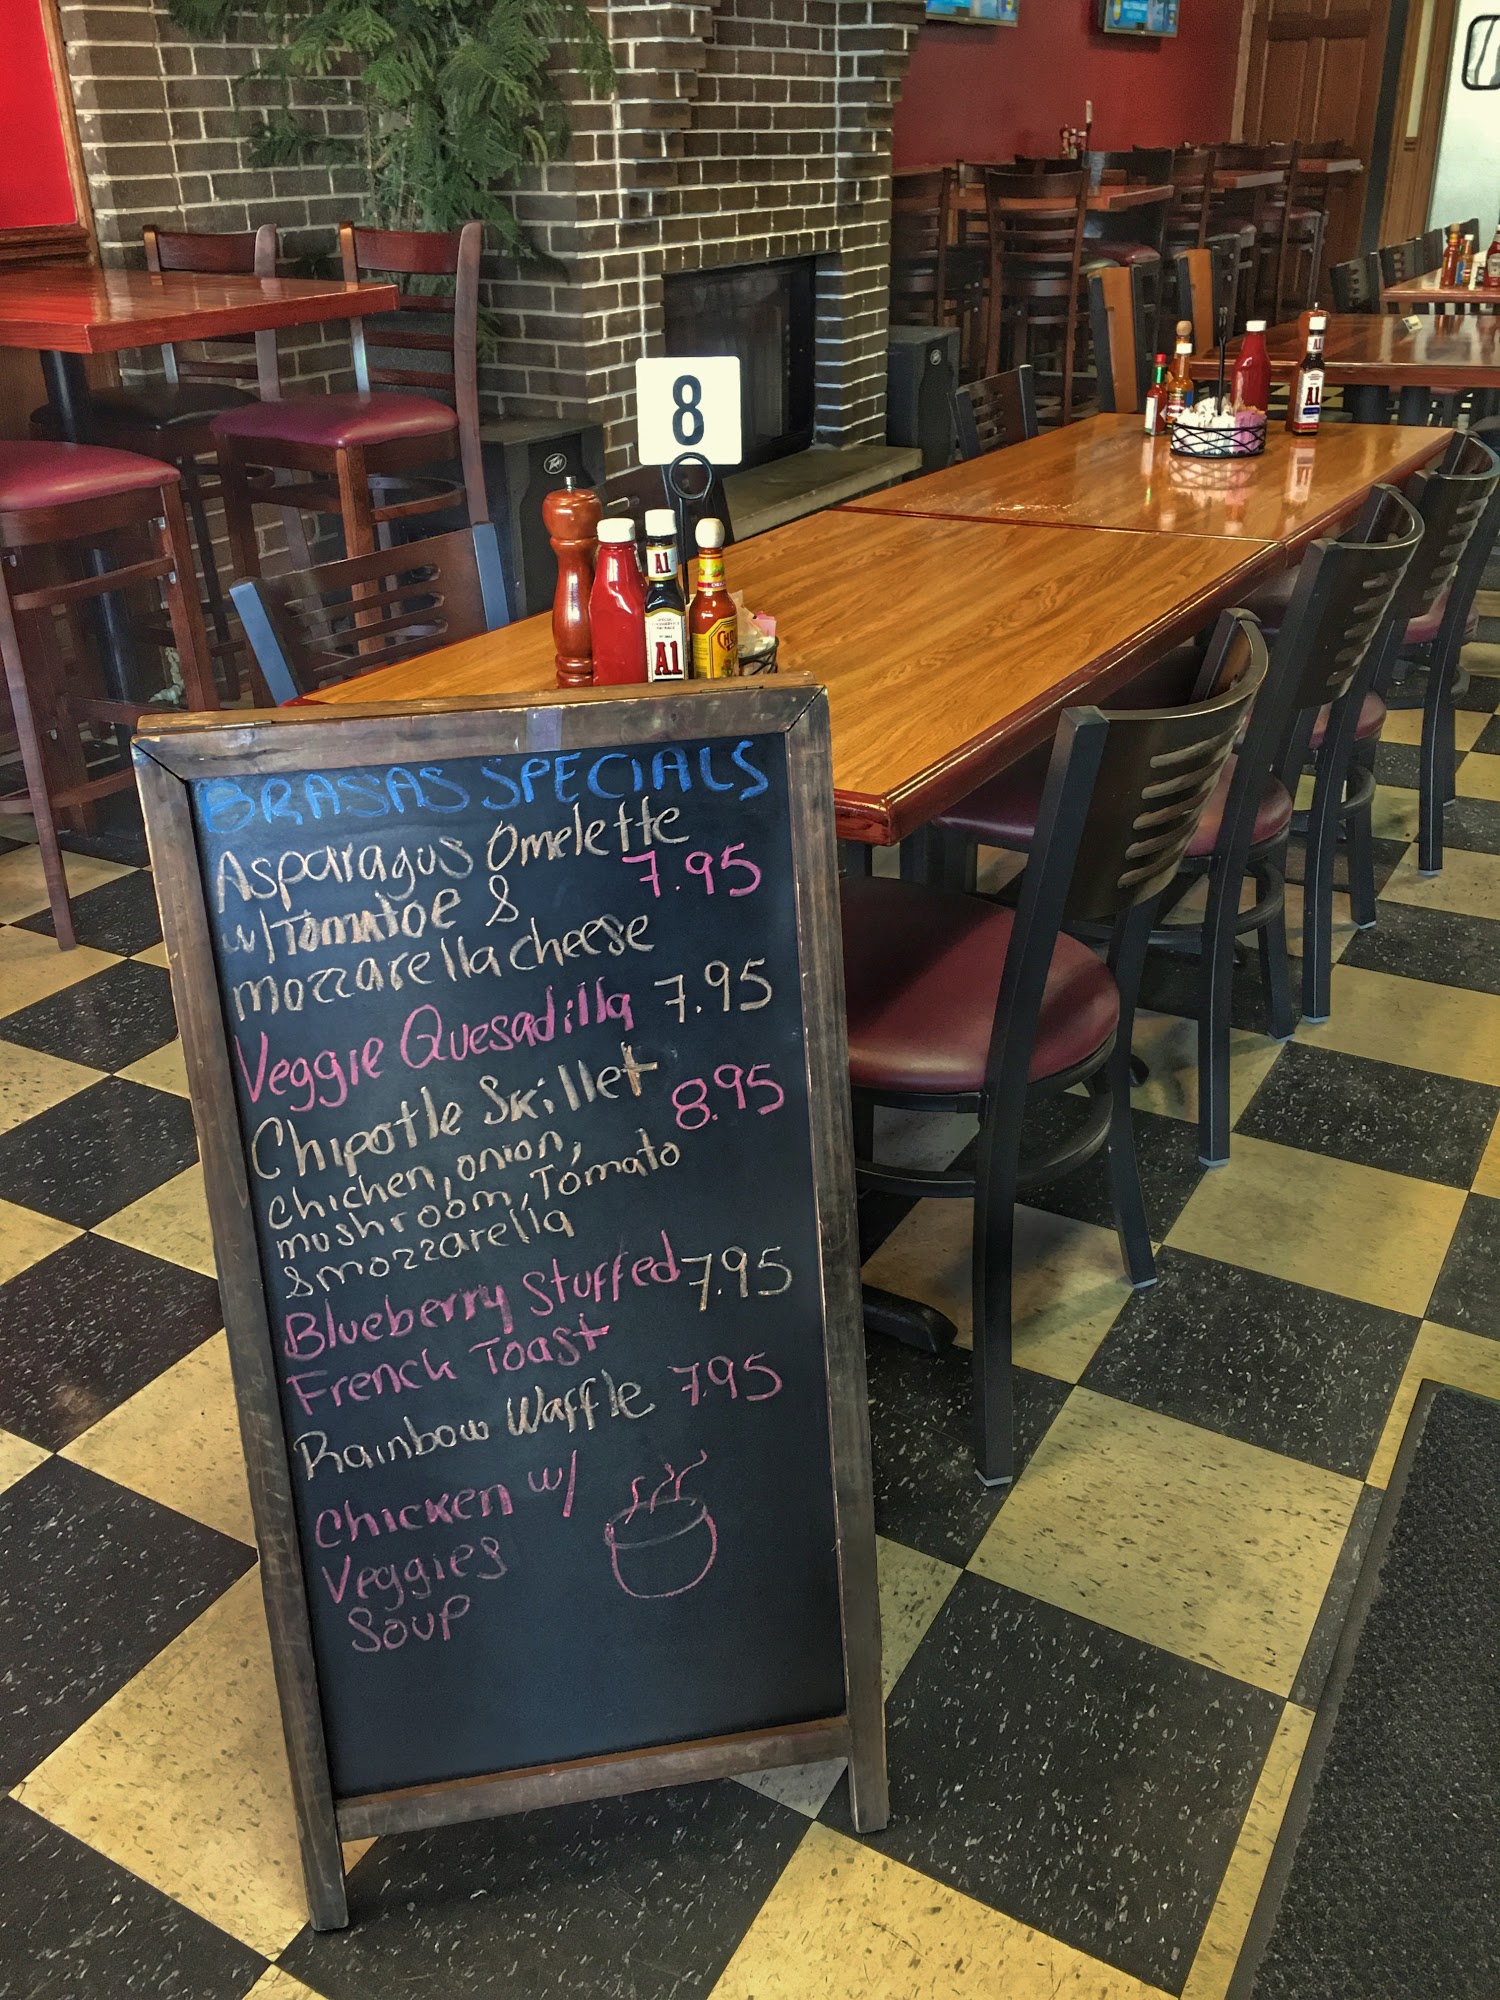 8
A1
A1
A1
A1
CHOLULA
BRASAS SPECIALS
Asparagus Omelette
w/Tomatoe & 7.95
mozzarella cheese
Veggie Quesadilla 7.95
Chipotle Skillet 8.95
chicken, onion,
mushroom, Tomato
& mozzarella
Blueberry Stuffed 7.95
French Toast
Rainbow Waffle 7.95
Chicken w/
Veggies
Soup